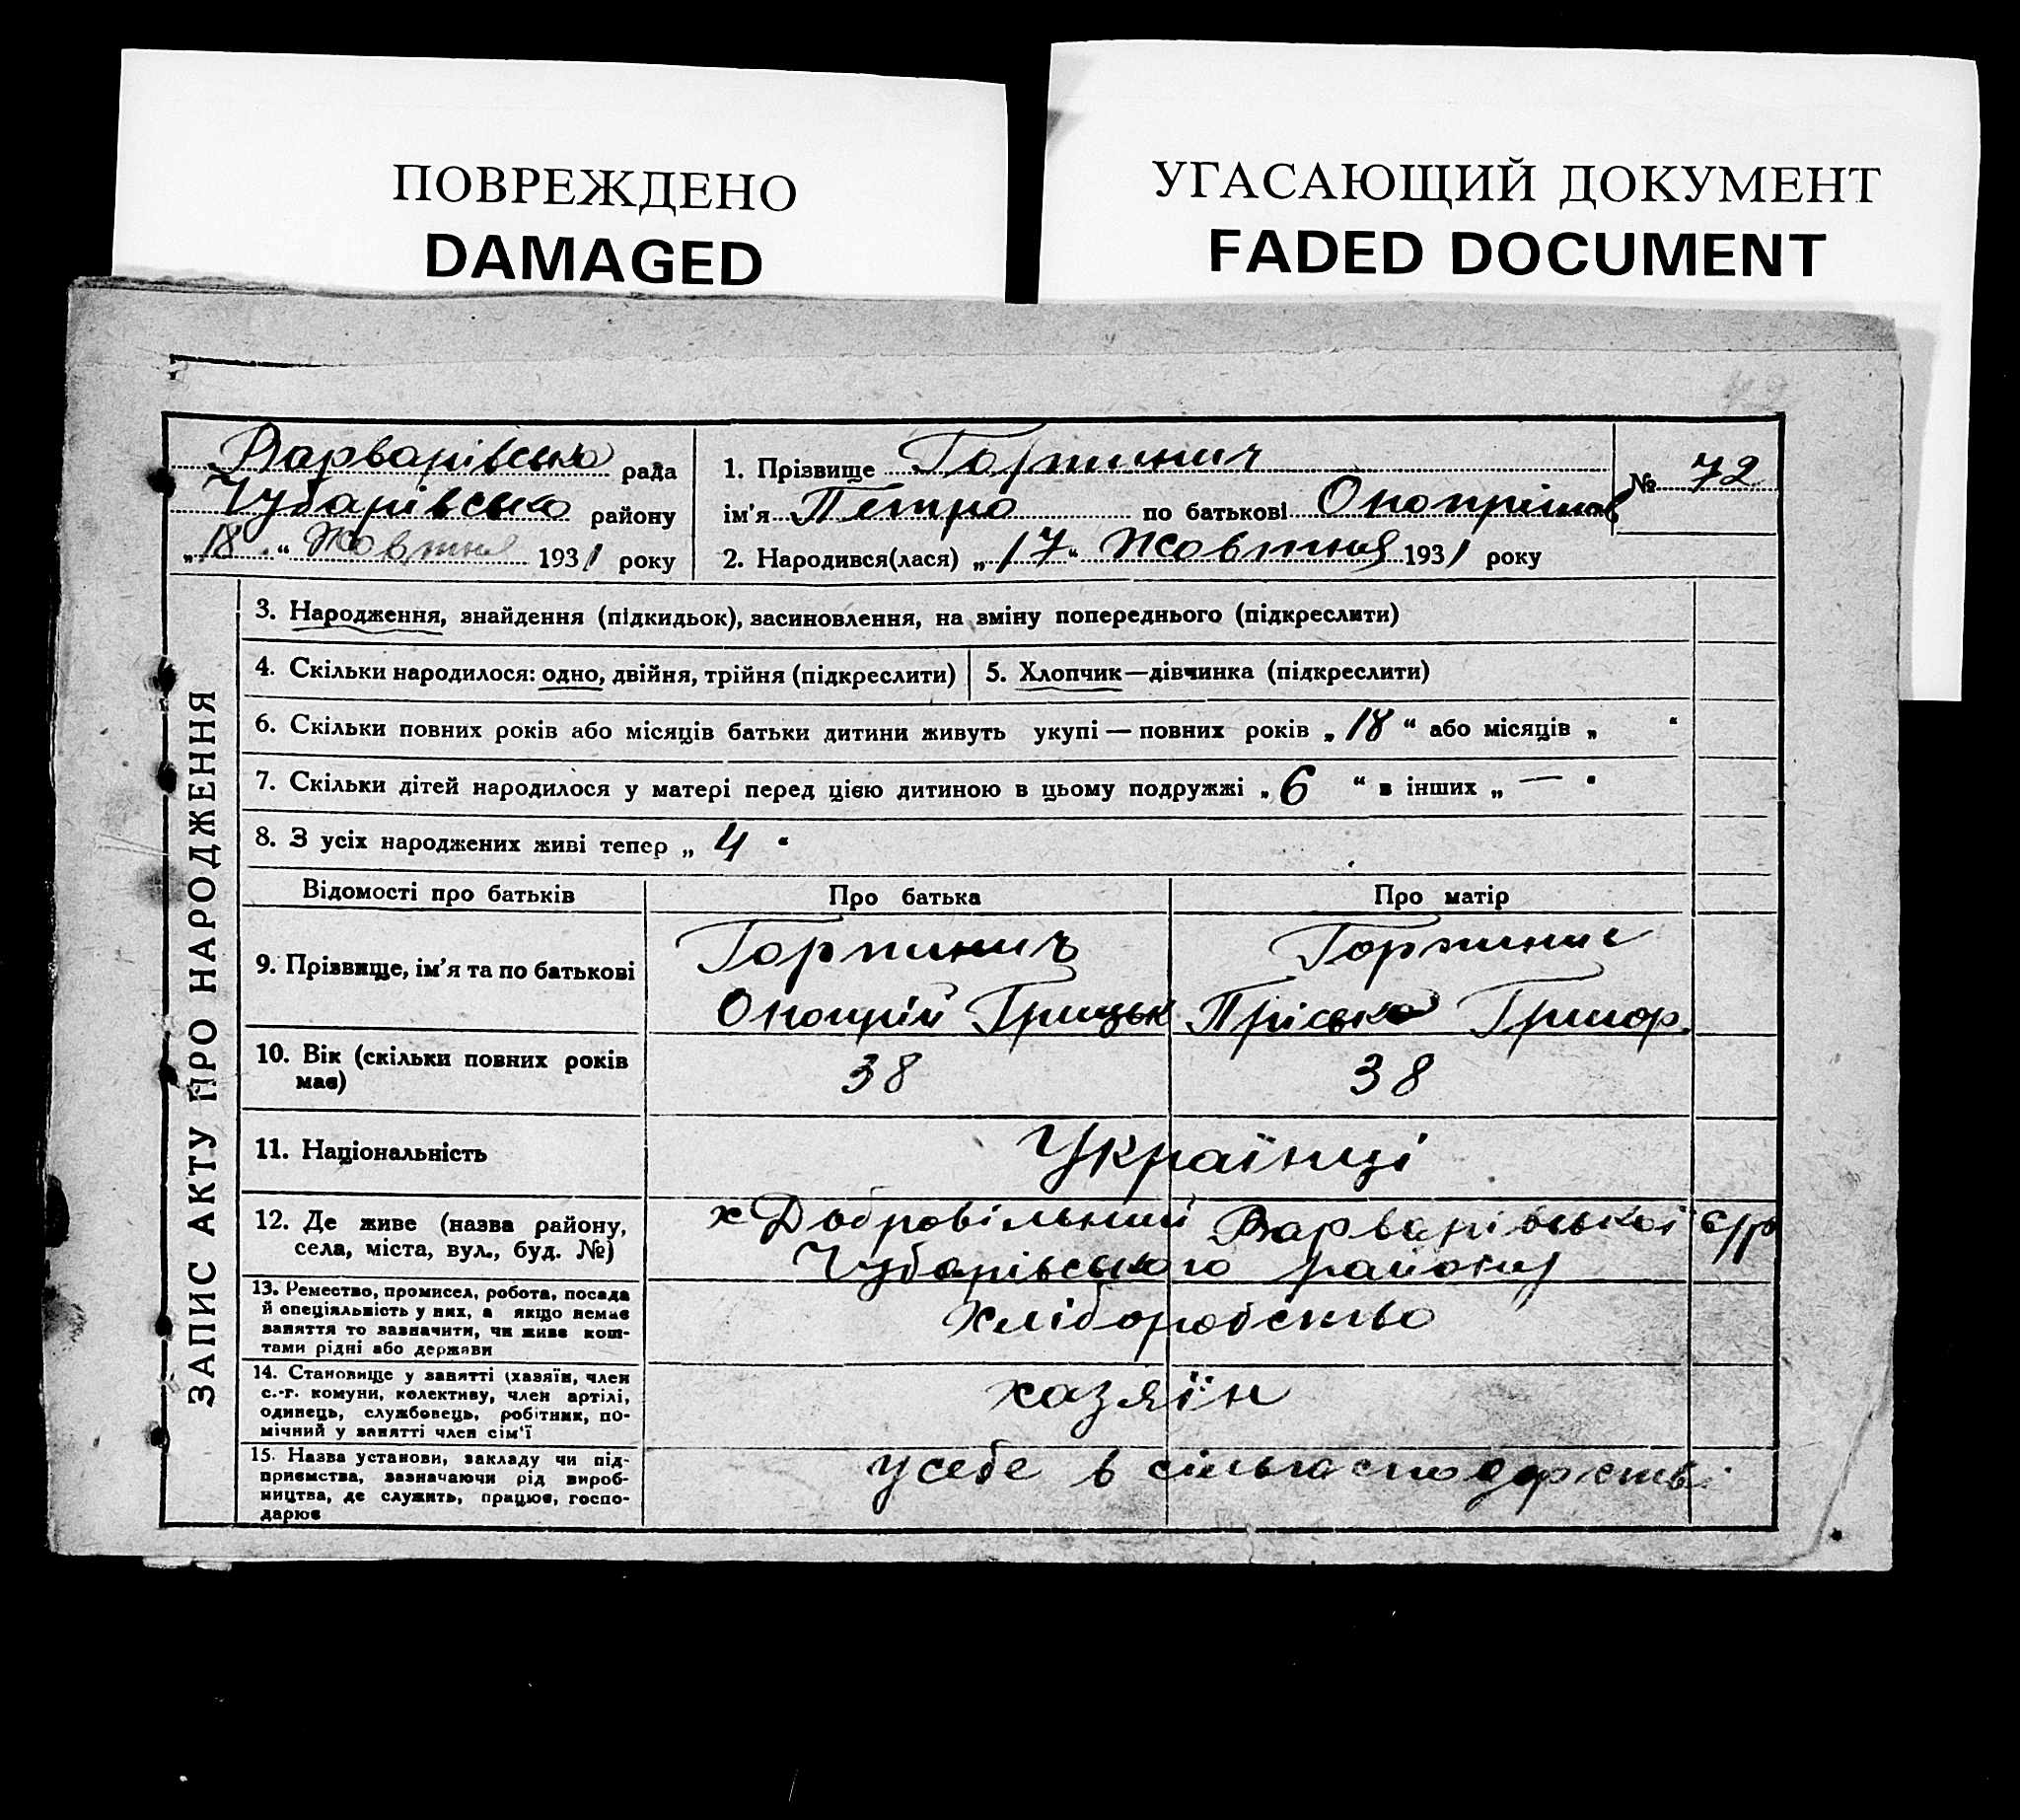 ПОВРЕЖДЕНО
DAMAGED
УГАСАЮЩИЙ ДОКУМЕНТ
FADED DOCUMENT
Варварівська рада
Чубарівсько району
„18“ Жовтня 1931 року
1. Прізвище Горпинич
ім'я Петро по батькові Онопрійов
2. Народився(лася) „17“ Жовтня 1931 року
№ 72
ЗАПИС АКТУ ПРО НАРОДЖЕННЯ
3. Народження, знайдення (підкидьок), засиновлення, на зміну попереднього (підкреслити)
4. Скільки народилося: одно, двійня, трійня (підкреслити)
5. Хлопчик—дівчинка (підкреслити)
6. Скільки повних років або місяців батьки дитини живуть укупі — повних років „18“ або місяців „ “
7. Скільки дітей народилося у матері перед цією дитиною в цьому подружжі „6“ в інших „—“
8. З усіх народжених живі тепер „4“
Відомості про батьків
Про батька
Про матір
9. Прізвище, ім'я та по батькові
Горпинич
Онопрій Грицьк
Горпинич
Пріська Григор.
10. Вік (скільки повних років
має)
38
38
11. Національність
Українці
12. Де живе (назва району,
села, міста, вул., буд. №)
х Добровільний Варварівської с/р
Чубарівського району
13. Ремество, промисел, робота, посада
й спеціяльність у них, а якщо немає
заняття то зазначити, чи живе кош-
тами рідні або держави
Хліборобство
14. Становище у занятті (хазяїн, член
с.-г. комуни, колективу, член артілі,
одинець, службовець, робітник, по-
мічний у занятті член сім'ї
хазяїн
15. Назва установи, закладу чи під-
приємства, зазначаючи рід вироб-
ництва, де служить, працює, госпо-
дарює
у себе в